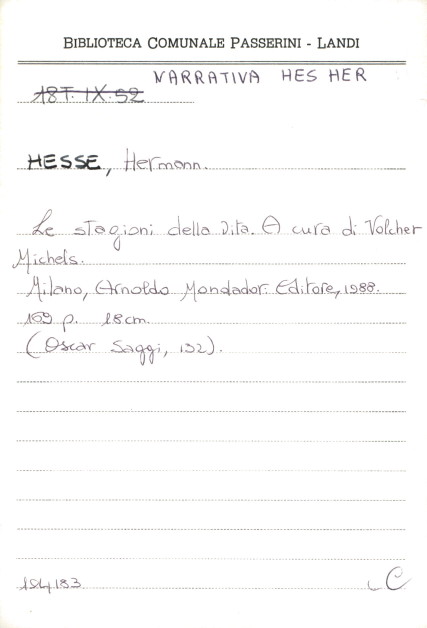 BIBLIOTECA COMUNALE PASSERINI - LANDI
NARRATIVA HES HER
18T. IX. 52
HESSE, Hermann.
Le stagioni della vita. A cura di Volcher
Michels.
Milano, Arnoldo Mondadori Editore, 1988.
169 p. 18 cm.
(Oscar Saggi, 132).
194183
C